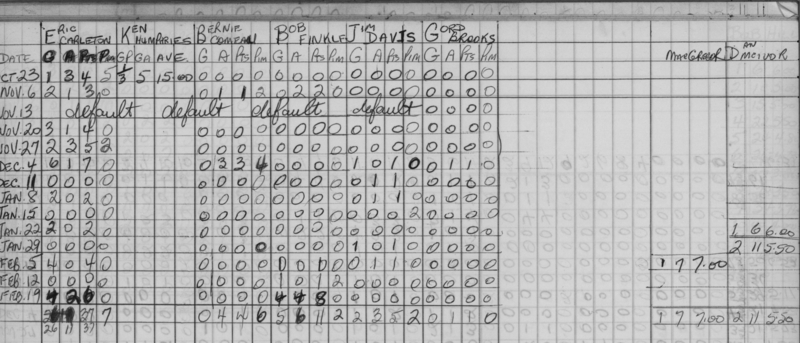 ERIC CARLETON KEN HUMPHRIES BERNIE COMEAU BOB FINKLE JIM DAVIS GORD BROOKS MACGREGOR DAN MCIVOR
DATE G A Pts Pim GP GA AVE. G A Pts Pim G A Pts Pim G A Pts Pim G A Pts Pim
OCT.23 1 3 4 5 1/3 5 15.00 0 0 0 0 0 0 0 0 0 0 0 0 0 0 0 0
NOV.6 2 1 3 0 0 1 1 2 0 2 2 0 0 0 0 0 0 0 0 0
NOV.13 default default default default 0 0 0 0
NOV.20 3 1 4 0 0 0 0 0 0 0 0 0 0 0 0 0 0 0 0 0
NOV.27 2 3 5 2 0 0 0 0 0 0 0 0 0 0 0 0 0 0 0 0
DEC.4 6 1 7 0 0 3 3 4 0 0 0 0 1 0 1 0 0 1 1 0
DEC.11 0 0 0 0 0 0 0 0 0 0 0 0 0 1 1 0 0 0 0 0
JAN.8 2 0 2 0 0 0 0 0 0 0 0 0 0 1 1 0 0 0 0 0
JAN.15 0 0 0 0 0 0 0 0 0 0 0 0 0 0 0 2 0 0 0 0
JAN.22 2 0 2 0 0 0 0 0 0 0 0 0 0 0 0 0 0 0 0 0 1 6 6.00
JAN.29 0 0 0 0 0 0 0 0 0 0 0 0 1 0 1 0 0 0 0 0 2 11 5.50
FEB.5 4 0 4 0 0 0 0 0 0 0 0 0 0 1 1 0 0 0 0 0 1 7 7.00
FEB.12 0 0 0 0 0 0 0 0 1 0 1 2 0 0 0 0 0 0 0 0
FEB.19 4 2 6 0 0 0 0 0 4 4 8 0 0 0 0 0 0 0 0
37 7 0 4 4 6 5 6 11 2 2 3 5 2 0 1 1 0 1 7 7.00 2 11 5.50
26 11 37